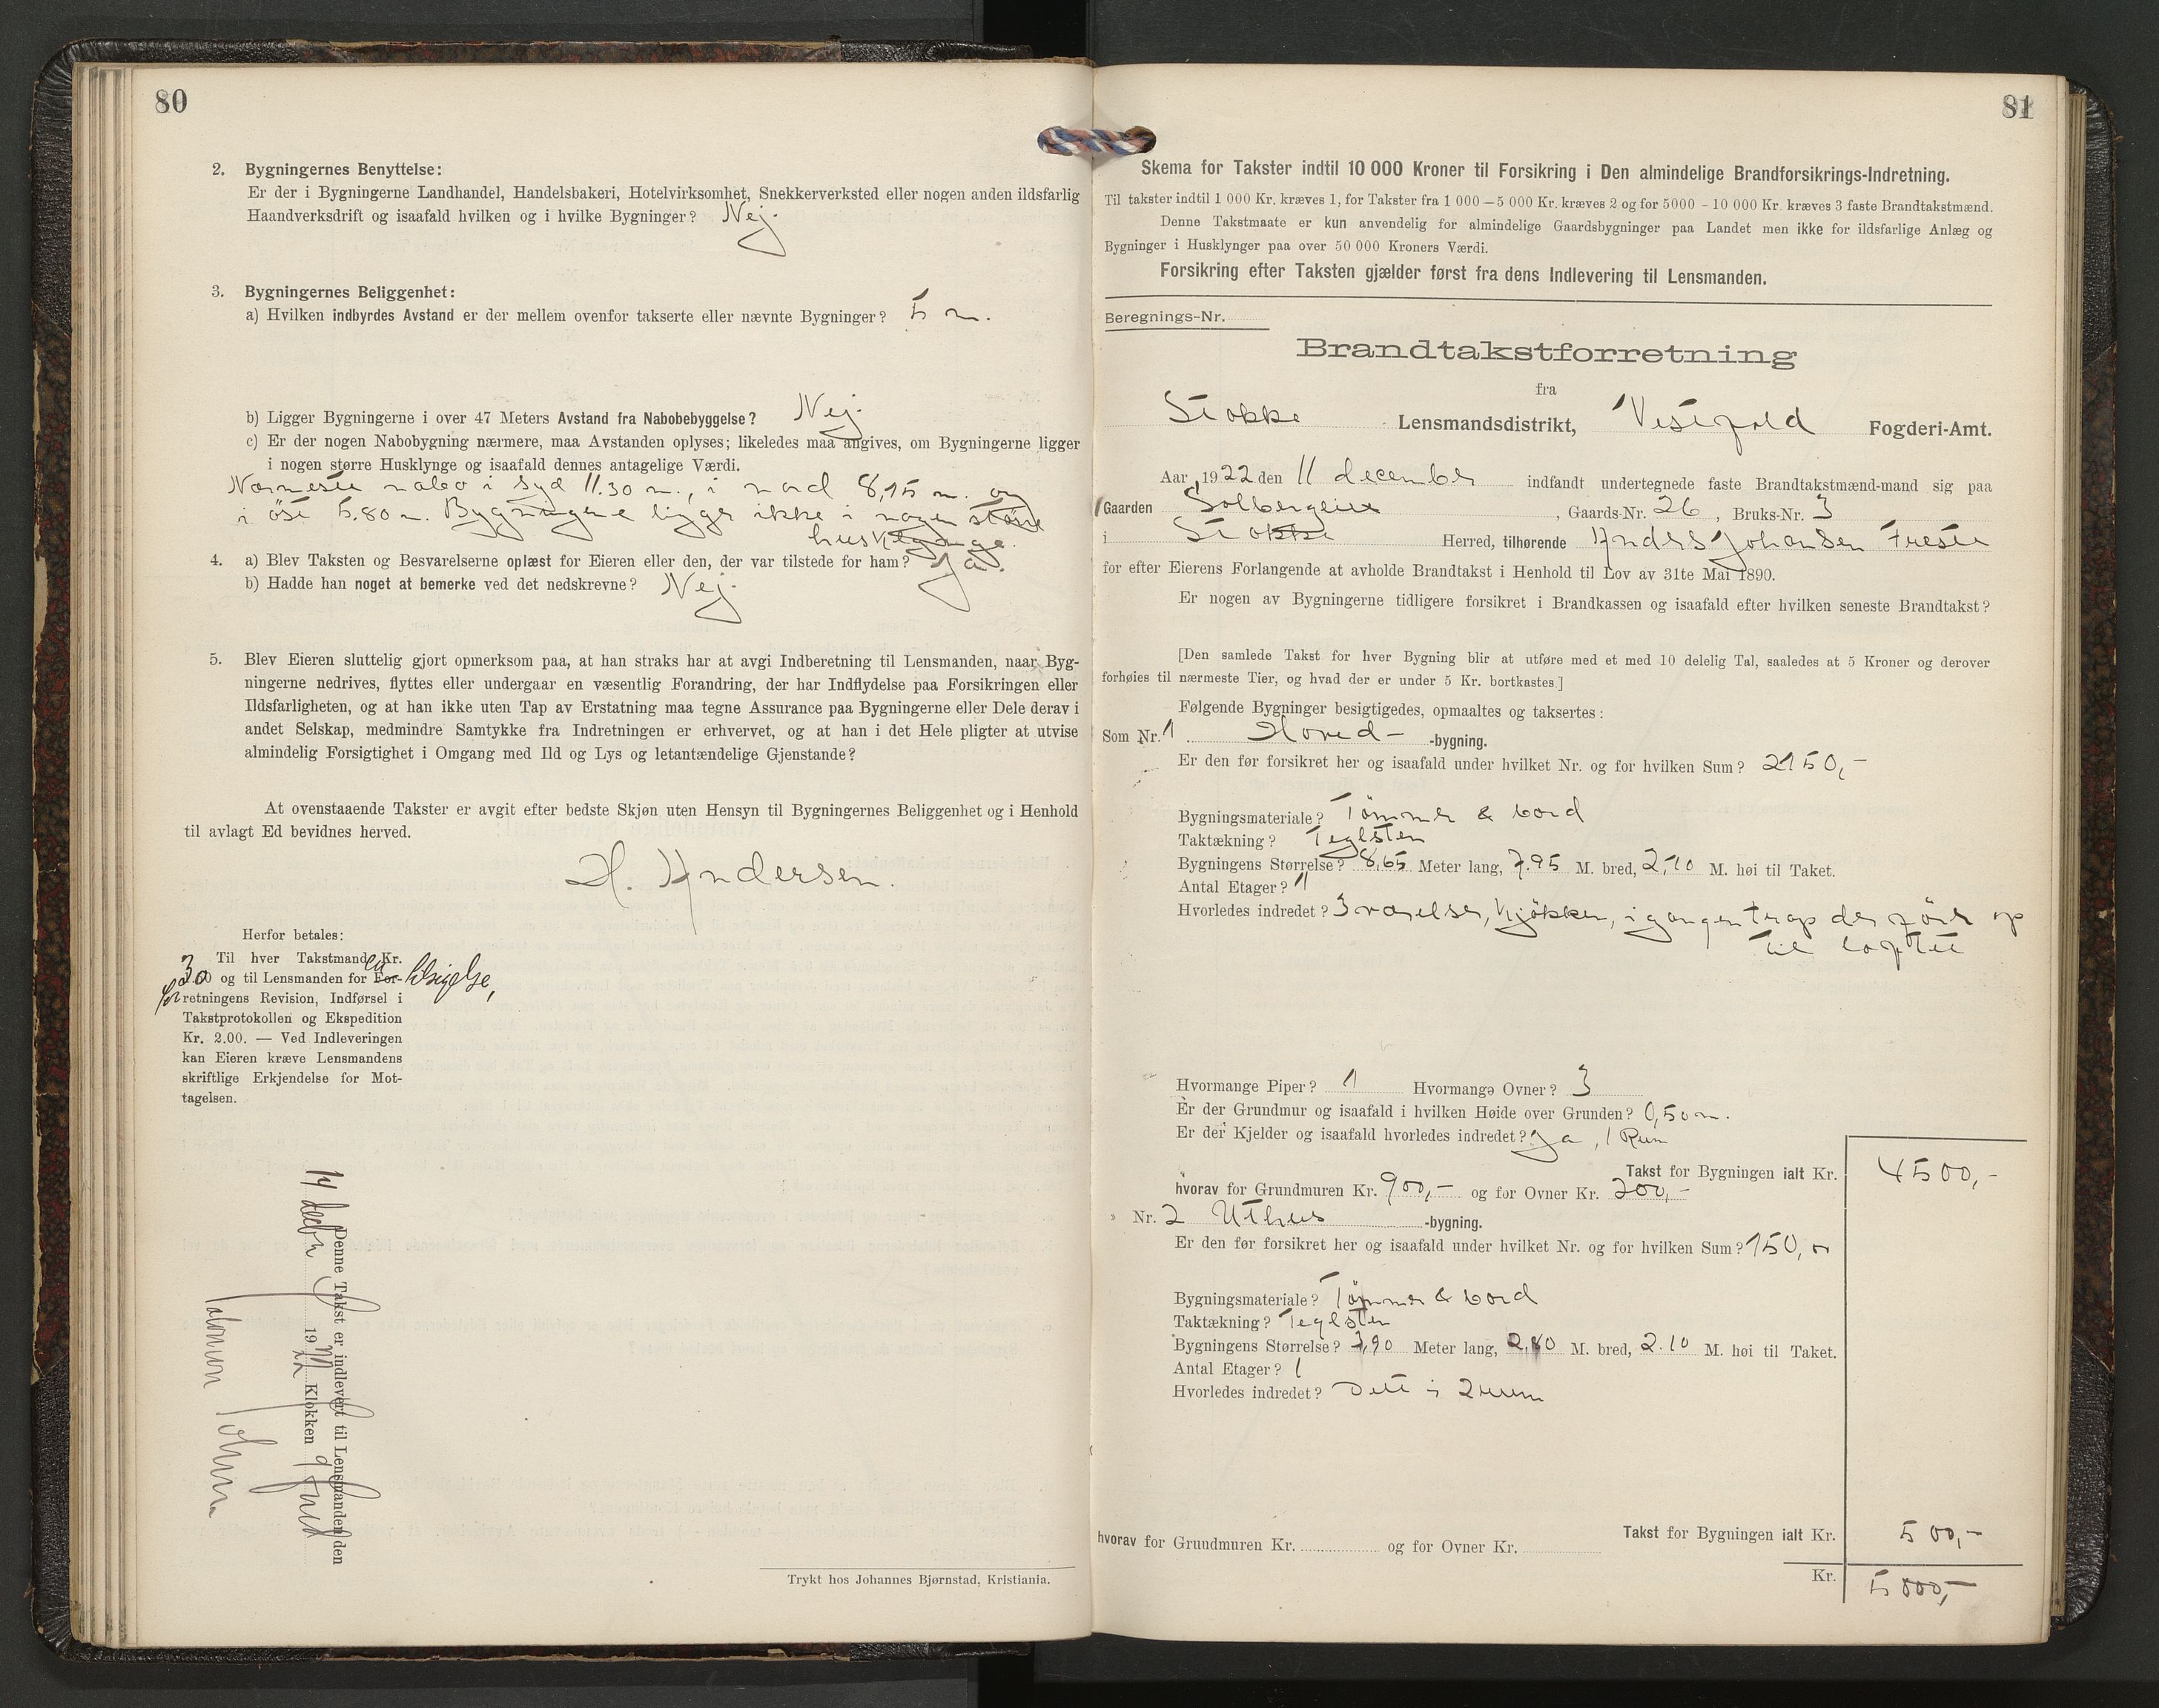 80
2. Bygningernes Benyttelse:
Er der i Bygningerne Landhandel, Handelsbakeri, Hotelvirksomhet, Snekkerverksted eller nogen anden ildsfarlig
Haandverksdrift og isaafald hvilken og i hvilke Bygninger? Nej.
3. Bygningernes Beliggenhet:
a) Hvilken indbyrdes Avstand er der mellem ovenfor takserte eller nævnte Bygninger? 5 m.
b) Ligger Bygningerne i over 47 Meters Avstand fra Nabobebyggelse? Nej.
c) Er der nogen Nabobygning nærmere, maa Avstanden oplyses; likeledes maa angives, om Bygningerne ligger
i nogen større Husklynge og isaafald dennes antagelige Værdi.
Nærmeste nabo i syd 11.30 m., i nord 8,15 m. og
i öst 5.80 m. Bygningene ligger ikke i nogen större
husklynge.
4. a) Blev Taksten og Besvarelserne oplæst for Eieren eller den, der var tilstede for ham? Ja.
b) Hadde han noget at bemerke ved det nedskrevne? Nej.
5. Blev Eieren sluttelig gjort opmerksom paa, at han straks har at avgi Indberetning til Lensmanden, naar Byg-
ningerne nedrives, flyttes eller undergaar en væsentlig Forandring, der har Indflydelse paa Forsikringen eller
Ildsfarligheten, og at han ikke uten Tap av Erstatning maa tegne Assurance paa Bygningerne eller Dele derav i
andet Selskap, medmindre Samtykke fra Indretningen er erhvervet, og at han i det Hele pligter at utvise
almindelig Forsigtighet i Omgang med Ild og Lys og letantændelige Gjenstande?
At ovenstaaende Takster er avgit efter bedste Skjøn uten Hensyn til Bygningernes Beliggenhet og i Henhold
til avlagt Ed bevidnes herved.
H. Andersen.
Herfor betales:
Til hver Takstmand Kr.
og til Lensmanden for For-
retningens Revision, Indførsel i
Takstprotokollen og Ekspedition
Kr. 2.00. — Ved Indleveringen
kan Eieren kræve Lensmandens
skriftlige Erkjendelse for Mot-
tagelsen.
Denne Takst er indlevert til Lensmanden den
14 decbr 1922 Klokken 9
Trykt hos Johannes Bjørnstad, Kristiania.
81
Skema for Takster indtil 10 000 Kroner til Forsikring i Den almindelige Brandforsikrings-Indretning.
Til takster indtil 1 000 Kr. kræves 1, for Takster fra 1 000 — 5 000 Kr. kræves 2 og for 5000 - 10 000 Kr. kræves 3 faste Brandtakstmænd.
Denne Takstmaate er kun anvendelig for almindelige Gaardsbygninger paa Landet men ikke for ildsfarlige Anlæg og
Bygninger i Husklynger paa over 50 000 Kroners Værdi.
Forsikring efter Taksten gjælder først fra dens Indlevering til Lensmanden.
Beregnings-Nr.
Brandtakstforretning
fra
Stokke Lensmandsdistrikt, Vestfold Fogderi-Amt.
Aar 1922 den 11 december indfandt undertegnede faste Brandtakstmænd-mand sig paa
Gaarden Solbergeie , Gaards-Nr. 26 , Bruks-Nr. 3
i Stokke Herred, tilhørende Anders Johansen Freste
for efter Eierens Forlangende at avholde Brandtakst i Henhold til Lov av 31te Mai 1890.
Er nogen av Bygningerne tidligere forsikret i Brandkassen og isaafald efter hvilken seneste Brandtakst?
[Den samlede Takst for hver Bygning blir at utføre med et med 10 delelig Tal, saaledes at 5 Kroner og derover
forhøies til nærmeste Tier, og hvad der er under 5 Kr. bortkastes]
Følgende Bygninger besigtigedes, opmaaltes og taksertes:
Som Nr. 1 Hoved- -bygning.
Er den før forsikret her og isaafald under hvilket Nr. og for hvilken Sum? 2150,-
Bygningsmateriale? Tömmer & bord
Taktækning? Teglsten
Bygningens Størrelse? 8,65 Meter lang, 7.95 M. bred, 2,10 M. høi til Taket.
Antal Etager? 1
Hvorledes indredet? 3 værelser, kjökken, i gangen trap der förer op
til loftet
Hvormange Piper? 1 Hvormange Ovner? 3
Er der Grundmur og isaafald i hvilken Høide over Grunden? 0,50 m.
Er der Kjelder og isaafald hvorledes indredet? Ja, 1 Rum
Takst for Bygningen ialt Kr. 4500,-
hvorav for Grundmuren Kr. 900,- og for Ovner Kr. 200,-
Nr. 2 Uthus -bygning.
Er den før forsikret her og isaafald under hvilket Nr. og for hvilken Sum? 150,
Bygningsmateriale? Tömmer & bord
Taktækning? Teglsten
Bygningens Størrelse? 3,90 Meter lang, 2,80 M. bred, 2.10 M. høi til Taket.
Antal Etager? 1
Hvorledes indredet? Delt i 2 rum
Takst for Bygningen ialt Kr. 500,-
hvorav for Gruudmuren Kr. og for Ovner Kr.
Kr. 5000,-